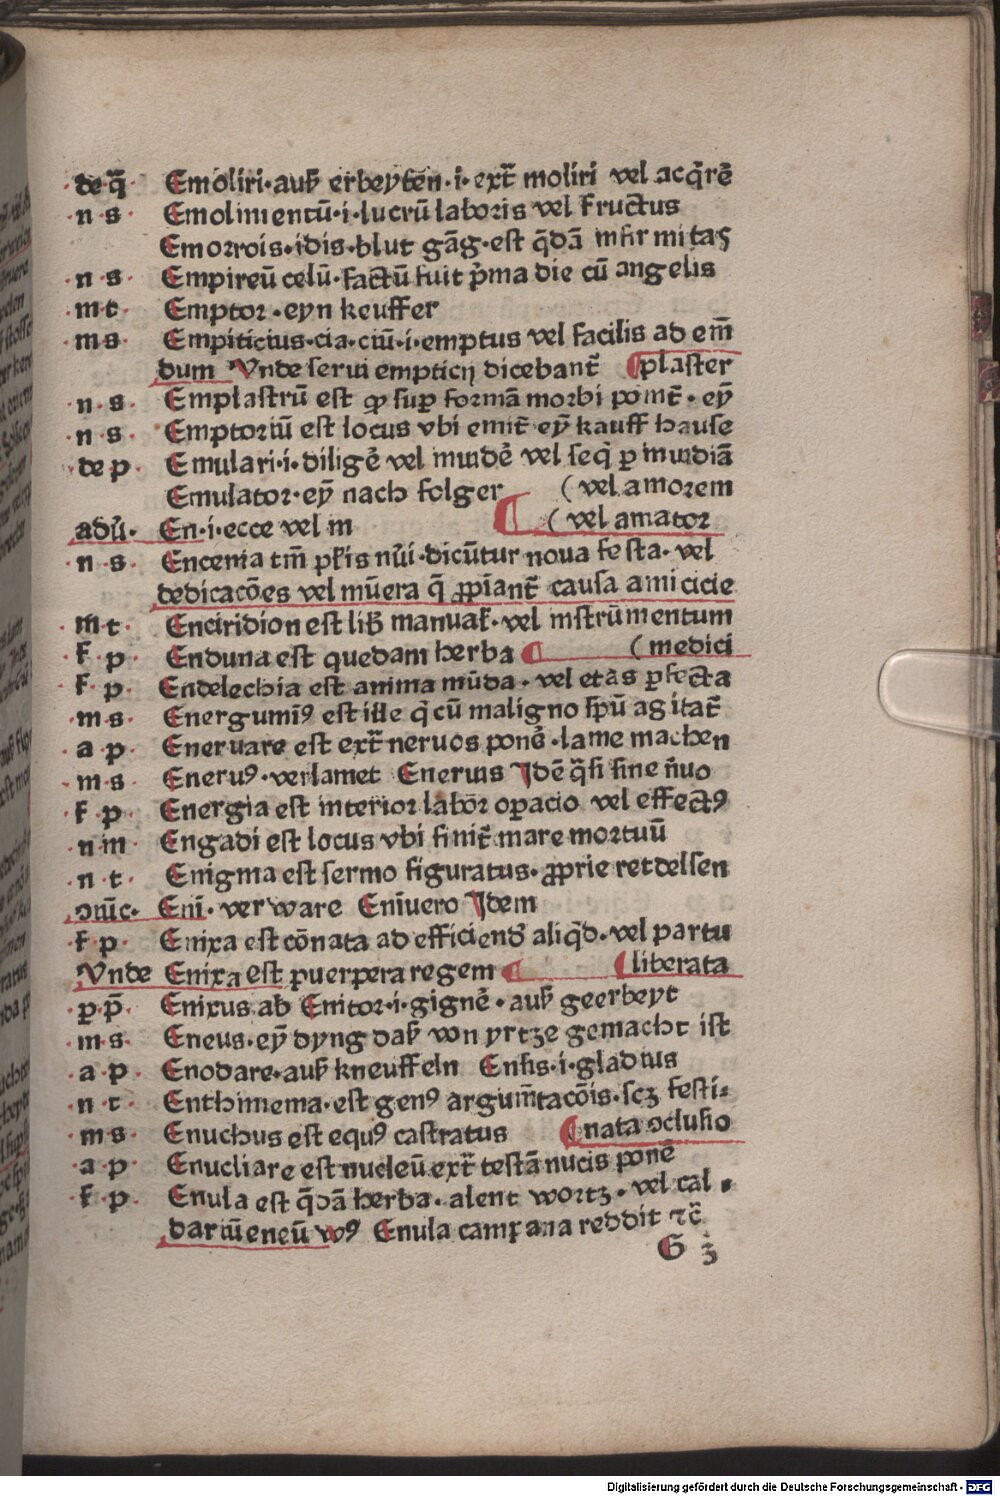 de q̄ Emoliri·auß erbeyten·i·ext̄ moliri vel acq̄rē
n s Emolimentū·i·lucrū laboris vel fructus
Emorrois·idis·blut gāg·est q̄dā infirmitas
n s Empireū celū·factū fuit p̄ma die cū angelis
m t Emptor·eyn keuffer
m s Empiticius·cia·ciū·i·emptus vel facilis ad em̄
dum Vnde serui empticij dicebant̄ ¶plaster
n s Emplastrū est ꝙ suꝑ formā morbi ponit̄·eȳ
n s Emptoriū est locus vbi emit̄ eȳ kauff hause
de p Emulari·i·diligē vel inuidē vel seq̄ ꝑ inuidiā
Emulator·eȳ nach folger (vel amorem
adū· En·i·ecce vel in ¶ (vel amator
n s Encenia tm̄ pl̄is nūi·dicūtur noua festa·vel
dedicacōes vel mūera q̄ ꝓpīant̄ causa amicicie
m t Enciridion est lib̄ manual̄·vel instrūmentum
f p Enduna est quedam herba ¶ (medici
f p Endelechia est anima mūda·vel etas ꝑfecta
m s Energumīꝰ est ille q̄ cū maligno sp̄ū agitat̄
a p Eneruare est ext̄ neruos ponē·lame machen
m s Eneruꝰ·verlamet Eneruis Jdē q̄si sine ñuo
f p Energia est interior labor oꝑacio vel effectꝰ
n m Engadi est locus vbi finit̄ mare mortuū
n t Enigma est sermo figuratus·ꝓprie retdelsen
ↄiūc· Enī·verware Enīuero Jdem
f p Enixa est cōnata ad efficiend̄ aliq̄d·vel partu
Vnde Enixa est puerpera regem ¶ ¶liberata
p p̄ Enixus ab Enitor·i·gignē·auß geerbeyt
m s Eneus·eȳ dyng daß von yrtze gemacht ist
a p Enodare·auß kneuffeln Ensis·i·gladius
n t Enthimema·est genꝰ argum̄tacōis·scꝫ festi-
m s Enuchus est equꝰ castratus ¶nata ↄclusio
a p Enucliare est nucleū ext̄ testā nucis ponē
f p Enula est q̄dā herba·alent wortz·vel cal-
dariū eneū vꝰ Enula campana reddit ⁊c̄
G 3
Digitalisierung gefördert durch die Deutsche Forschungsgemeinschaft - DFG